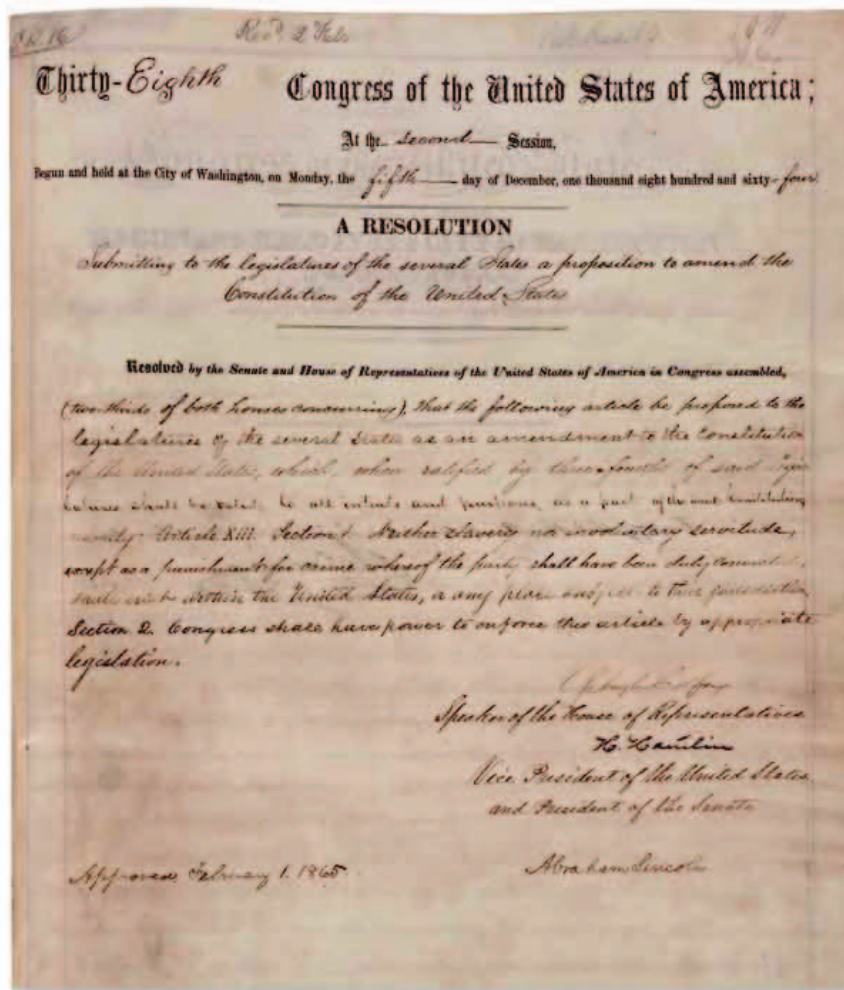 Rec'd 2 Feb
Thirty-Eighth Congress of the United States of America;
At the second Session,
Begun and held at the City of Washington, on Monday, the fifth day of December, one thousand eight hundred and sixty-four
A RESOLUTION
Submitting to the legislatures of the several States a proposition to amend the
Constitution of the United States
Resolved by the Senate and House of Representatives of the United States of America in Congress assembled,
(two-thirds of both houses concurring), That the following article be proposed to the
legislatures of the several States as an amendment to the Constitution
of the United States, which, when ratified by three-fourths of said legis-
latures shall be valid, to all intents and purposes, as a part of the said Constitution,
namely: Article XIII. Section 1. Neither slavery nor involuntary servitude,
except as a punishment for crime whereof the party shall have been duly convicted,
shall exist within the United States, or any place subject to their jurisdiction.
Section 2. Congress shall have power to enforce this article by appropriate
legislation.
Schuyler Colfax
Speaker of the House of Representatives
H. Hamlin
Vice President of the United States
and President of the Senate
Approved, February 1. 1865.
Abraham Lincoln